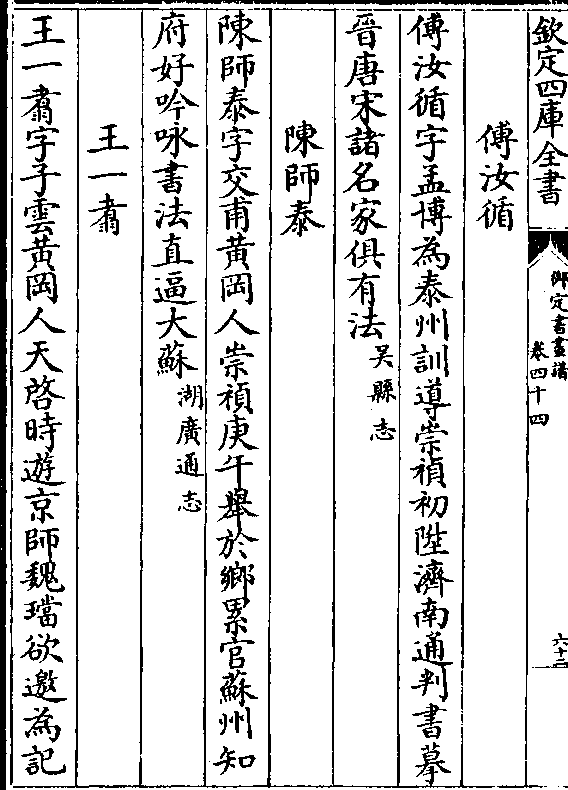 欽定四庫全書
御定書畫譜
卷四十四
六十二
傅汝循
傅汝循字孟博為泰州訓導崇禎初陞濟南通判書摹
晉唐宋諸名家俱有法吳縣志
陳師泰
陳師泰字交甫黃岡人崇禎庚午舉於鄉累官蘇州知
府好吟咏書法直逼大蘇湖廣通志
王一翥
王一翥字子雲黃岡人天啓時遊京師魏璫欲邀為記